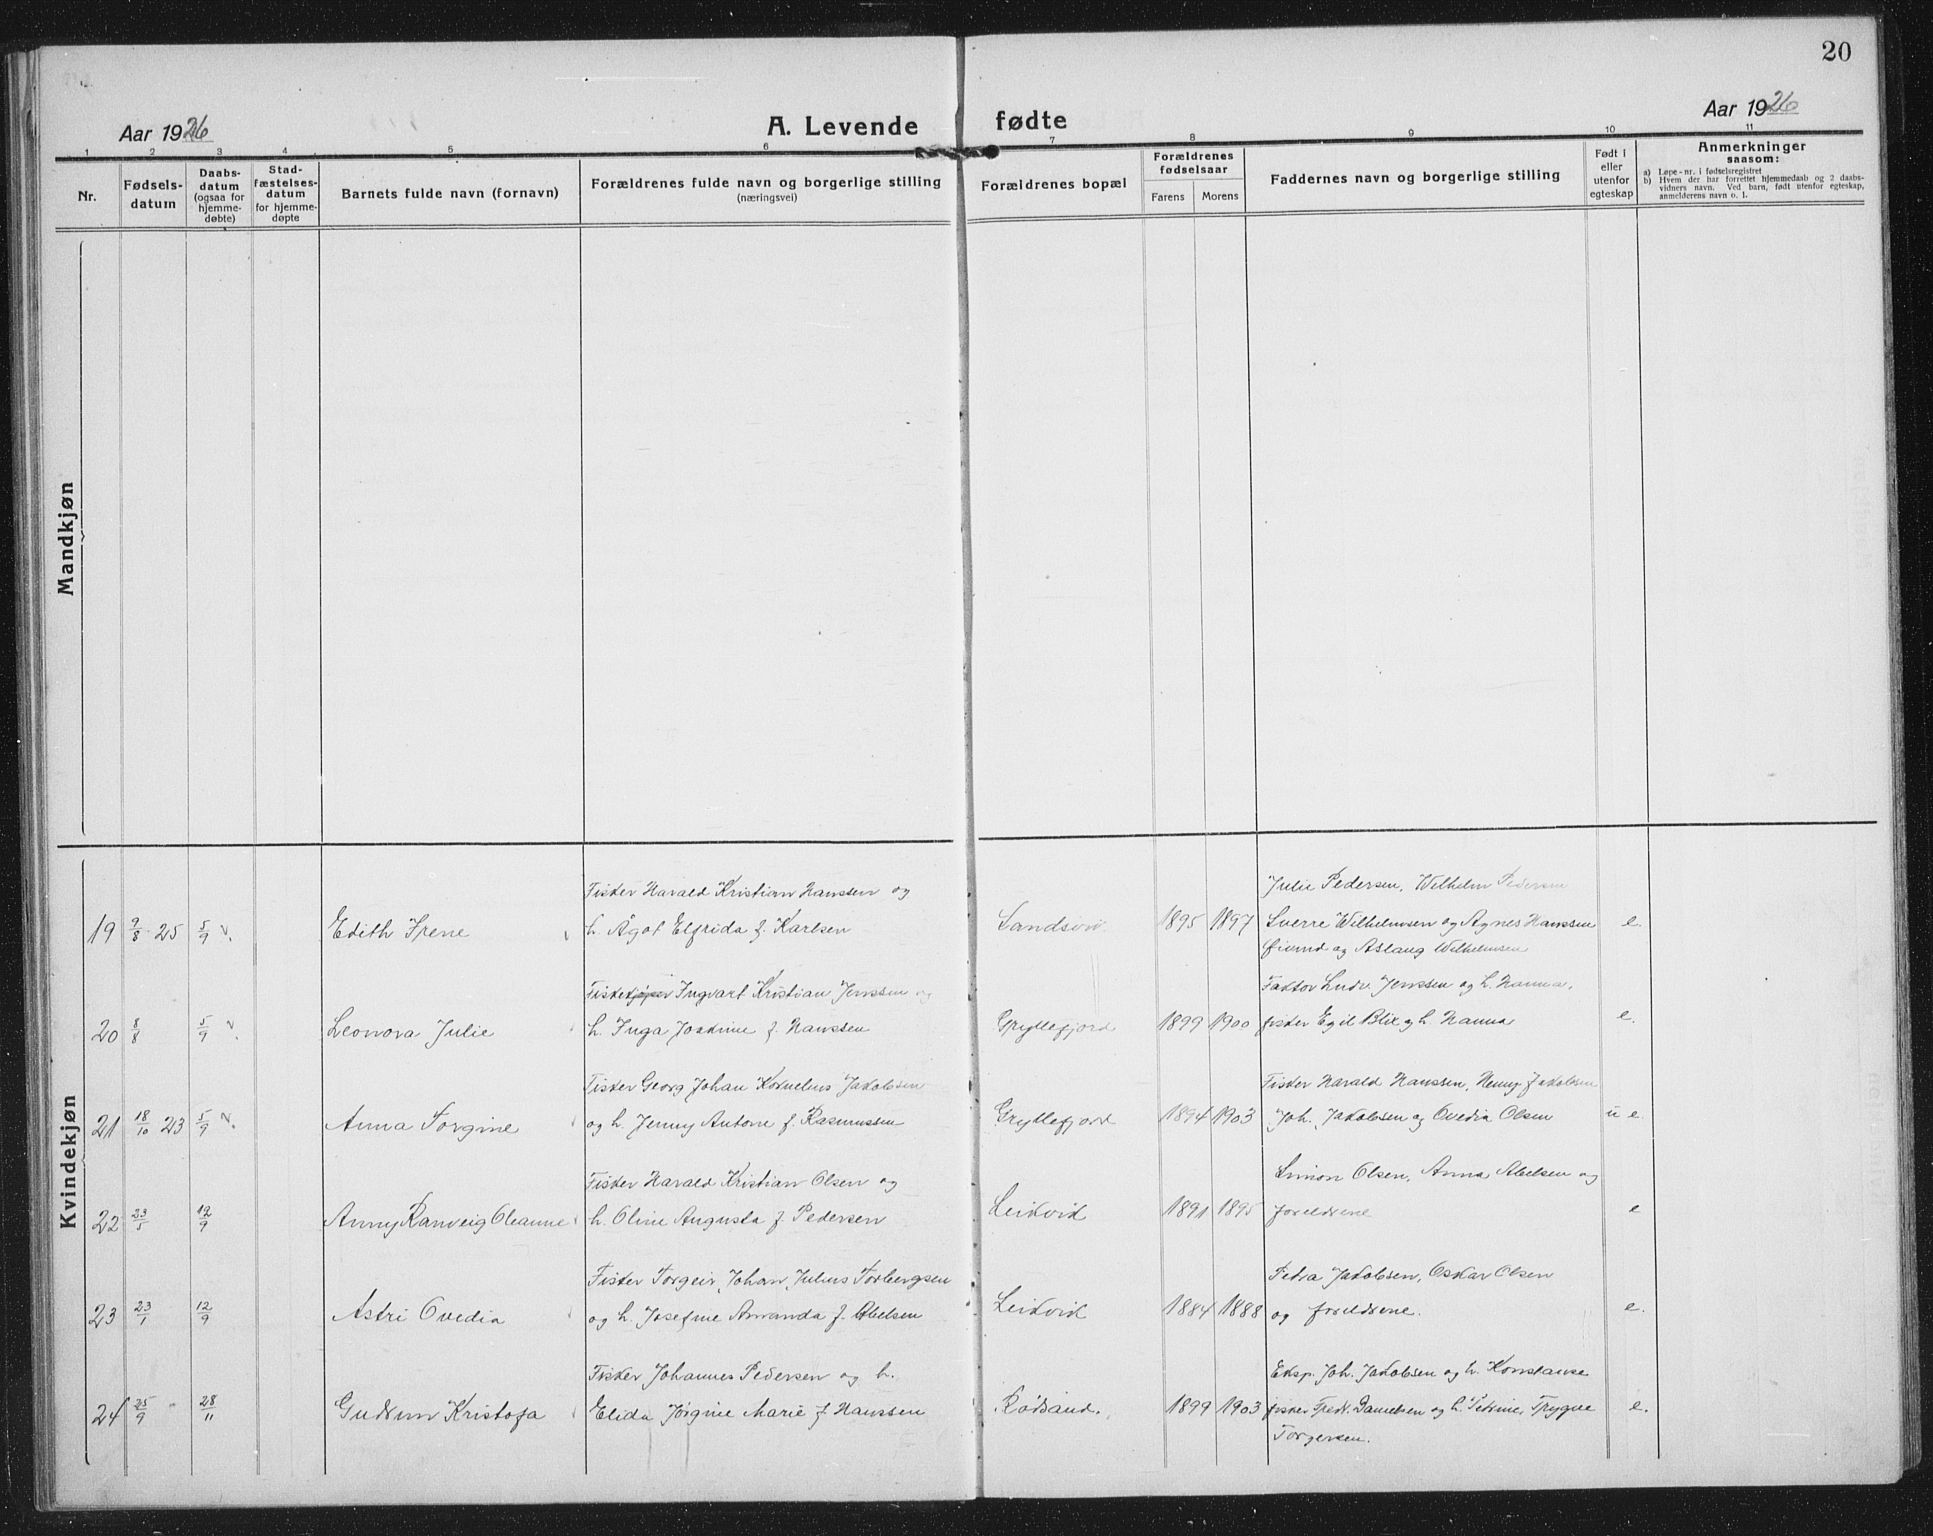 20
Aar 1926
A. Levende fødte
Aar 1926
1 2 3 4 5 6 7 8 9 10 11
Nr.
Fødsels-
datum
Daabs-
datum
(ogsaa for
hjemme-
døbte)
Stad-
fæstelses-
datum
for hjemme-
døpte
Barnets fulde navn (fornavn)
Forældrenes fulde navn og borgerlige stilling
(næringsvei)
Forældrenes bopæl
Forældrenes
fødselsaar
Farens Morens
Faddernes navn og borgerlige stilling
Født i
eller
utenfor
egteskap
Anmerkninger
saasom:
a) Løpe-nr. i fødselsregistret
b) Hvem der har forrettet hjemmedaab og 2 daabs-
vidners navn. Ved barn, født utenfor egteskap,
anmelderens navn o. l.
Mandkjøn
Kvindekjøn
Fisker Harald Kristian Hanssen og
Julie Pedersen, Wilhelm Pedersen
19 9/8 25 5/9 Edith Irene h. Ågot Elfrida f. Karlsen 1895 1897 Sverre Wilhelmsen og Agnes Hanssen e.
og Aslaug Wilhelmsen
Ingvart Kristian Jenssen og
Faktor Jenssen og h. Hanna,
20 8/8 5/9 Leonora Julie h. Inga f. Hanssen Gryllefjord 1899 1900 fisker Egil Blix og h. Hanna e.
Fisker Georg Johan Kornelius Jakobsen
Fisker Harald Hanssen, Henny Jakobsen
21 18/10 23 5/9 Anna Torgine og h. Jenny Antone f. Rasmussen Gryllefjord 1894 1903 Joh. Jakobsen og Ovedia Olsen u e.
Fisker Harald Kristian Olsen og
Simon Olsen, Anna Abelsen og
22 23/5 12/9 Anny Ranveig Oleanne h. Oline Augusta f. Pedersen Leikvik 1891 1895 foreldrene e
Fisker Torgeir Johan Julius Torbergsen
Petra Jakobsen, Oskar Olsen
23 23/1 12/9 Astri Ovedia og h. Josefine Amanda f. Abelsen Leikvik 1884 1888 og foreldrene. e.
Fisker Johannes Pedersen og h.
Eksp. Joh. Jakobsen og h. Konstanse
24 25/9 28/11 Gudrun Kristofa Elida Jørgine Marie f. Hanssen Rødsand. 1899 1903 fisker Fredr. Danielsen og h. Petrine, Trygve e.
Torgersen.